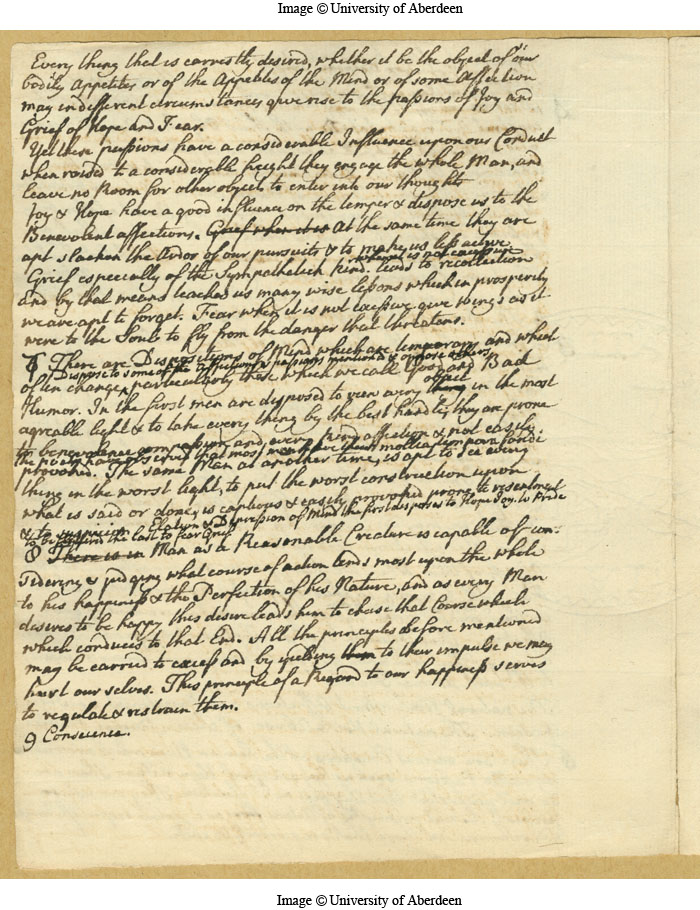 Image © University of Aberdeen
Every thing that is earnestly desired, whether it be the object of our
bodily Appetites or of the Appetites of the Mind or of some Affection
may in different circumstances give rise to the passions of Joy and
Grief of Hope and Fear.
Yet these passions have a considerable Influence upon our Conduct
when raised to a considerable height they engage the whole Man, and
leave no Room for other objects to enter into our thoughts
Joy & Hope have a good influence on the temper & dispose us to the
Benevolent affections. Grief when it is At the same time they are
apt slacken the Ardor of our pursuits & to make us less active
when it is not excessive
Grief especially of the Sympathetick kind. tends to recollection
and by that means teaches us many wise lessons which in prosperity
we are apt to forget. Fear when it is not excessive give wings as it
were to the Soul to fly from the danger that threatens.
There are Dispositions of Mind which are temporary and which
Dispose to some of the affections & passions mentiond & oppose others
often change, particularly those which we call Good and Bad
object
Humor. In the first men are disposed to view every thing in the most
agreable light & to take every thing by the best handle, they are prone
to benevolence compassion and every kind affection & not easily
the poets have observed that most men have their mollia tempora fandi
provoked. The same Man at another time, is apt to see every
thing in the worst light, to put the worst construction upon
what is said or done, is captious & easily provoked prone to resentment
& to suspicion Elation & Depression of Mind the first disposes to Hope Joy. to Pride
the last to fear Grief
8 There is in Man as a Reasonable Creature is capable of con-
sidering & judging what course of action tends most upon the whole
to his happiness & the Perfection of his Nature, and as every Man
desires to be happy this desire leads him to chuse that Course which
which conduces to that End. All the principles before mentioned
may be carried to excess and by yielding them to their impulse we may
hurt our selves. This principle of a Regard to our happiness serves
to regulate & restrain them.
9 Conscience.
Image © University of Aberdeen